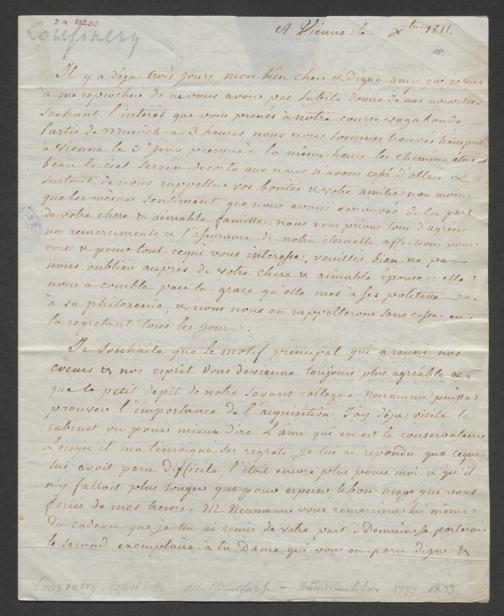 2 a 15250
Cousinery
A Vienne le Xbre 1811.
Il y a déja trois jours, mon bien cher et digne amy que j'ai
a me reprocher de ne vous avoir pas subito donné de mes nouvelles
sachant l'intérêt que vous prenés à notre course vagabonde.
Partis de Munich à 3 heures nous nous sommes trouvés
à Vienne le 3e jour presqu'à la même heure. les chemins
beau le ciel serein desorte que nous n'avons cessé d'aller &
surtout de nous rappeller vos bontés & votre amitié non moins
que les mêmes sentiment que nous avons éprouvés de la part
de votre chere & aimable famille; nous vous prions tous d'agréer
nos remerciments & l'assurance de notre éternelle affection pour
vous & pour tout cequi vous interesse. veuillés bien ne pas
nous oublier auprès de votre chere & aimable épouse; elle
nous a comblé par la grace qu'elle met à ses politesse
à sa philoxenie, & nous nous en rappellerons sans cesse en
la regretant tous les jours.
Je souhaite que le motif principal qui a reuni nos
cœurs & nos esprit vous devienne toujours plus agréable &
que le petit depit de notre savant collegue Neumann puisse
prouver l'importance de l'acquisition. J'ay déja visité le
cabinet ou pour mieux dire l'ami qui en est le conservateur
Lorsqu'il m'a temoigné ses regrets, je lui ai repondu que ceque
lui avoit paru difficile l'étoit encore plus pour moi & qu'il
n'y falloit plus songer que pour esperer le bon usage que vous
feriés de mes tresors. Mr Neumann vous remercie lui même
du cadeau que je lui ai remis de votre part. Demain je porterai
le second exemplaire à la Dame qui vous en paru digne &
Cousinery